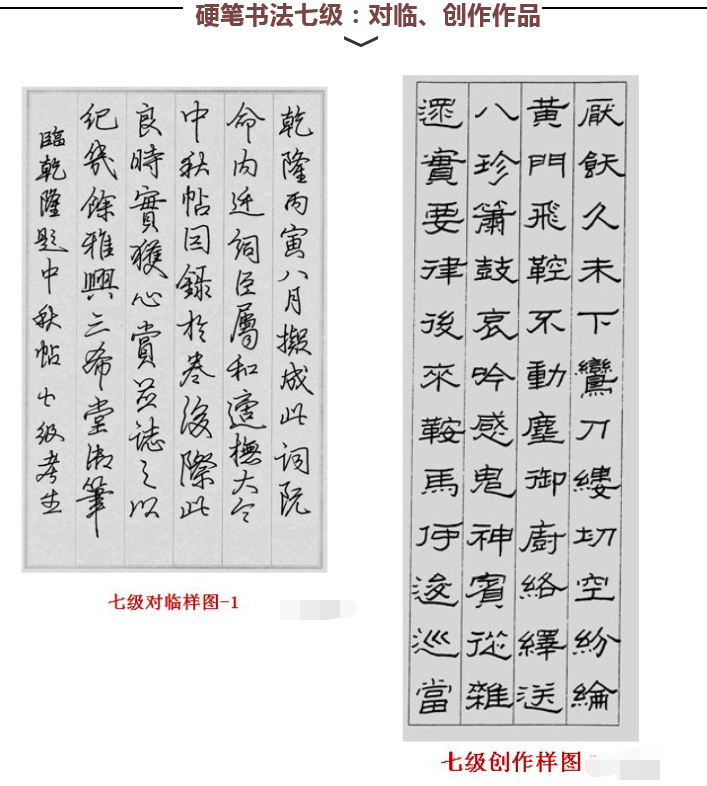 硬笔书法七级：对临、创作作品
乾隆丙寅八月擬成此詞既
命内廷詞臣屬和適撫大令
中秋帖因錄於卷後際此
良時實獲心賞並誌之以
紀幾餘雅興三希堂御筆
臨乾隆題中秋帖七级考生
七级对临样图-1
厭飫久未下鸞刀縷切空紛綸
黃門飛鞚不動塵御廚絡繹送
八珍簫鼓哀吟感鬼神賓從雜
遝實要律後來鞍馬何逡巡當
七级创作样图